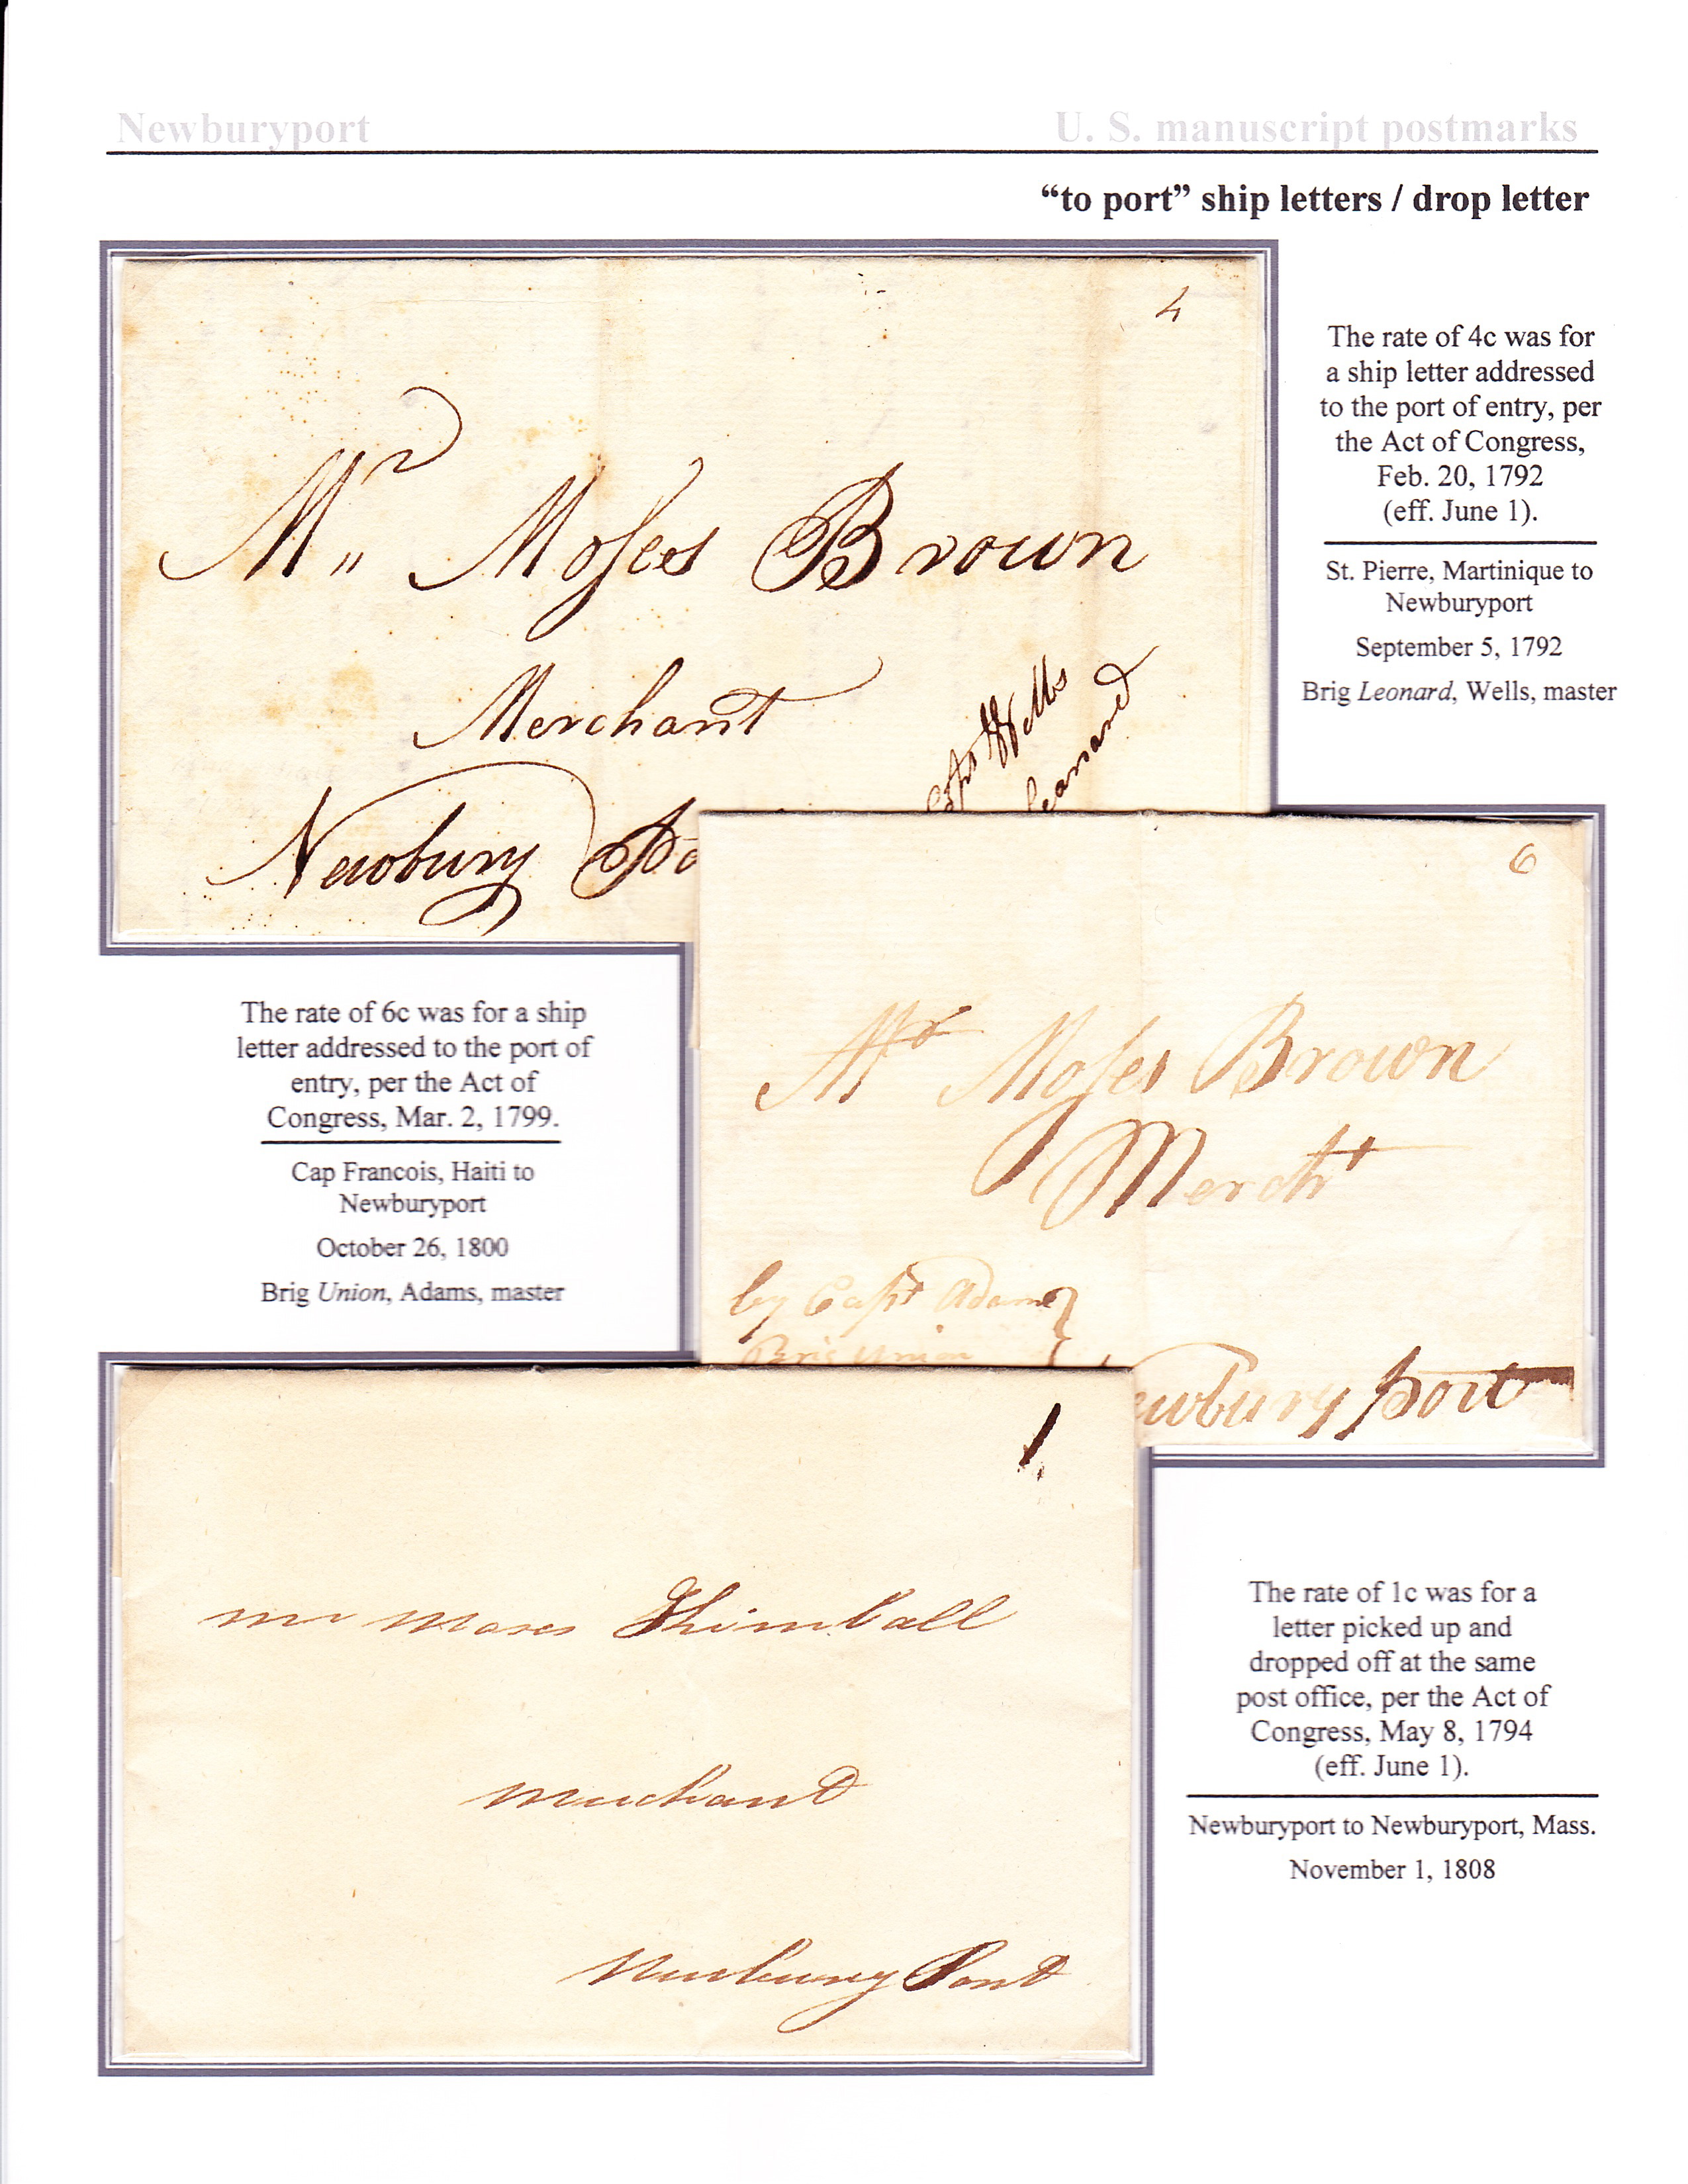 Newburyport
U. S. manuscript postmarks
“to port” ship letters / drop letter
4
Mr Moses Brown
Merchant
Newbury Po
Capt Wells
Leanard
The rate of 4c was for
a ship letter addressed
to the port of entry, per
the Act of Congress,
Feb. 20, 1792
(eff. June 1).
St. Pierre, Martinique to
Newburyport
September 5, 1792
Brig Leonard, Wells, master
6
Mr Moses Brown
Mercht
by Capt Adams
Brig Union
ewbury port
The rate of 6c was for a ship
letter addressed to the port of
entry, per the Act of
Congress, Mar. 2, 1799.
Cap Francois, Haiti to
Newburyport
October 26, 1800
Brig Union, Adams, master
1
mr Moses Khimball
Merchant
Newbury Port
The rate of 1c was for a
letter picked up and
dropped off at the same
post office, per the Act of
Congress, May 8, 1794
(eff. June 1).
Newburyport to Newburyport, Mass.
November 1, 1808